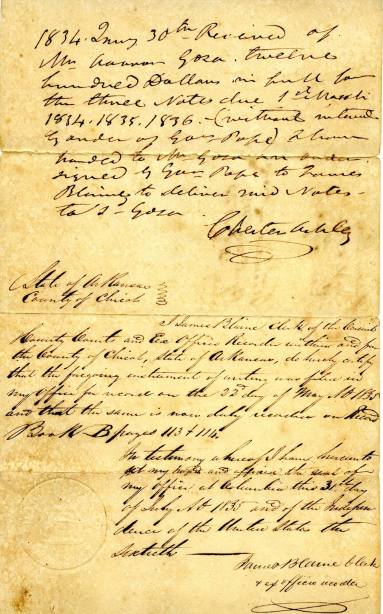 1834. 30th Received of
Mr Aaron Goza. twelve
hundred Dollars in full for
the three Notes due 1st March
1834. 1835. 1836 - (without
by order of Govr Pope) I have
handed to Mr Goza an order
signed by Govr Pope to James
Blaine to deliver said Notes
to sd Goza.
Chester Ashley
State of Arkansas
County of Chicot
I James Blaine Clerk of the Circuit
County Courts and Exo Officio Recorder within and for
the County of Chicot, State of Arkansas, do hereby certify
that the foregoing instrument of writing was filed in
my Office for record on the 22d day of May AD 1835
and that the same is now duly recorded on Record
Book B pages 113 & 114.
In testimony whereof I have hereunto
set my hand and affixed the seal of
my office at Columbia this day
of July AD 1835 and of the Indepen
dence of the United States the
sixtieth —
James Blaine Clerk
& ex officio recorder